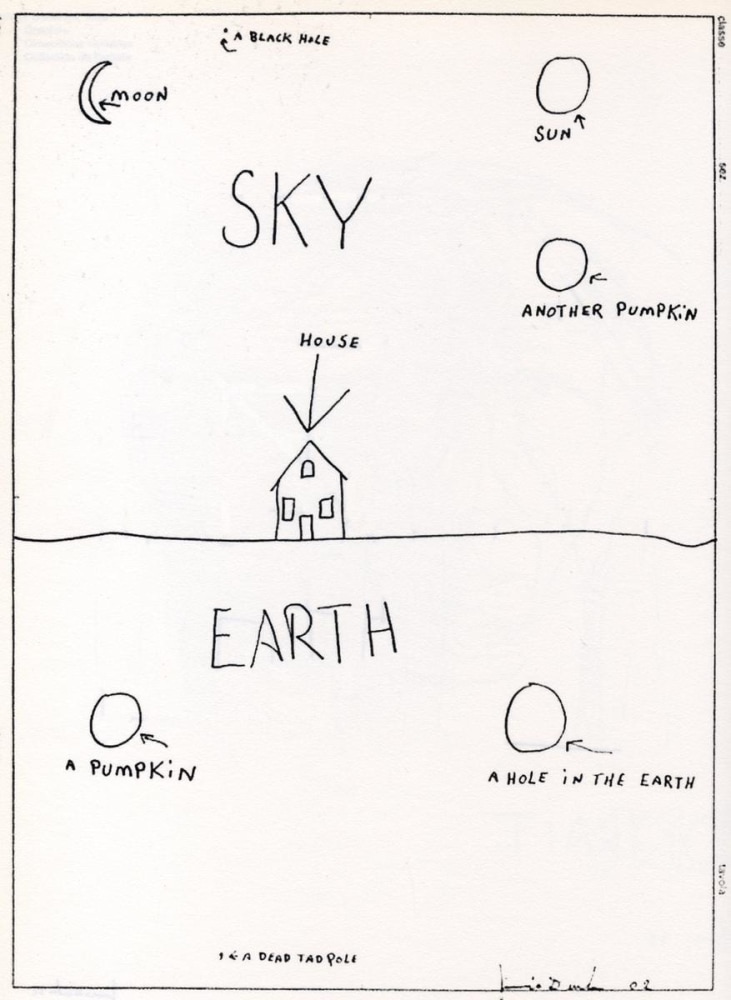 A BLACK HOLE
MOON
SUN
SKY
ANOTHER PUMPKiN
HOUSE
EARTH
A PUMPKiN
A HOLE iN THE EARTH
A DEAD TADPOLE
02
classe
sez
tavola